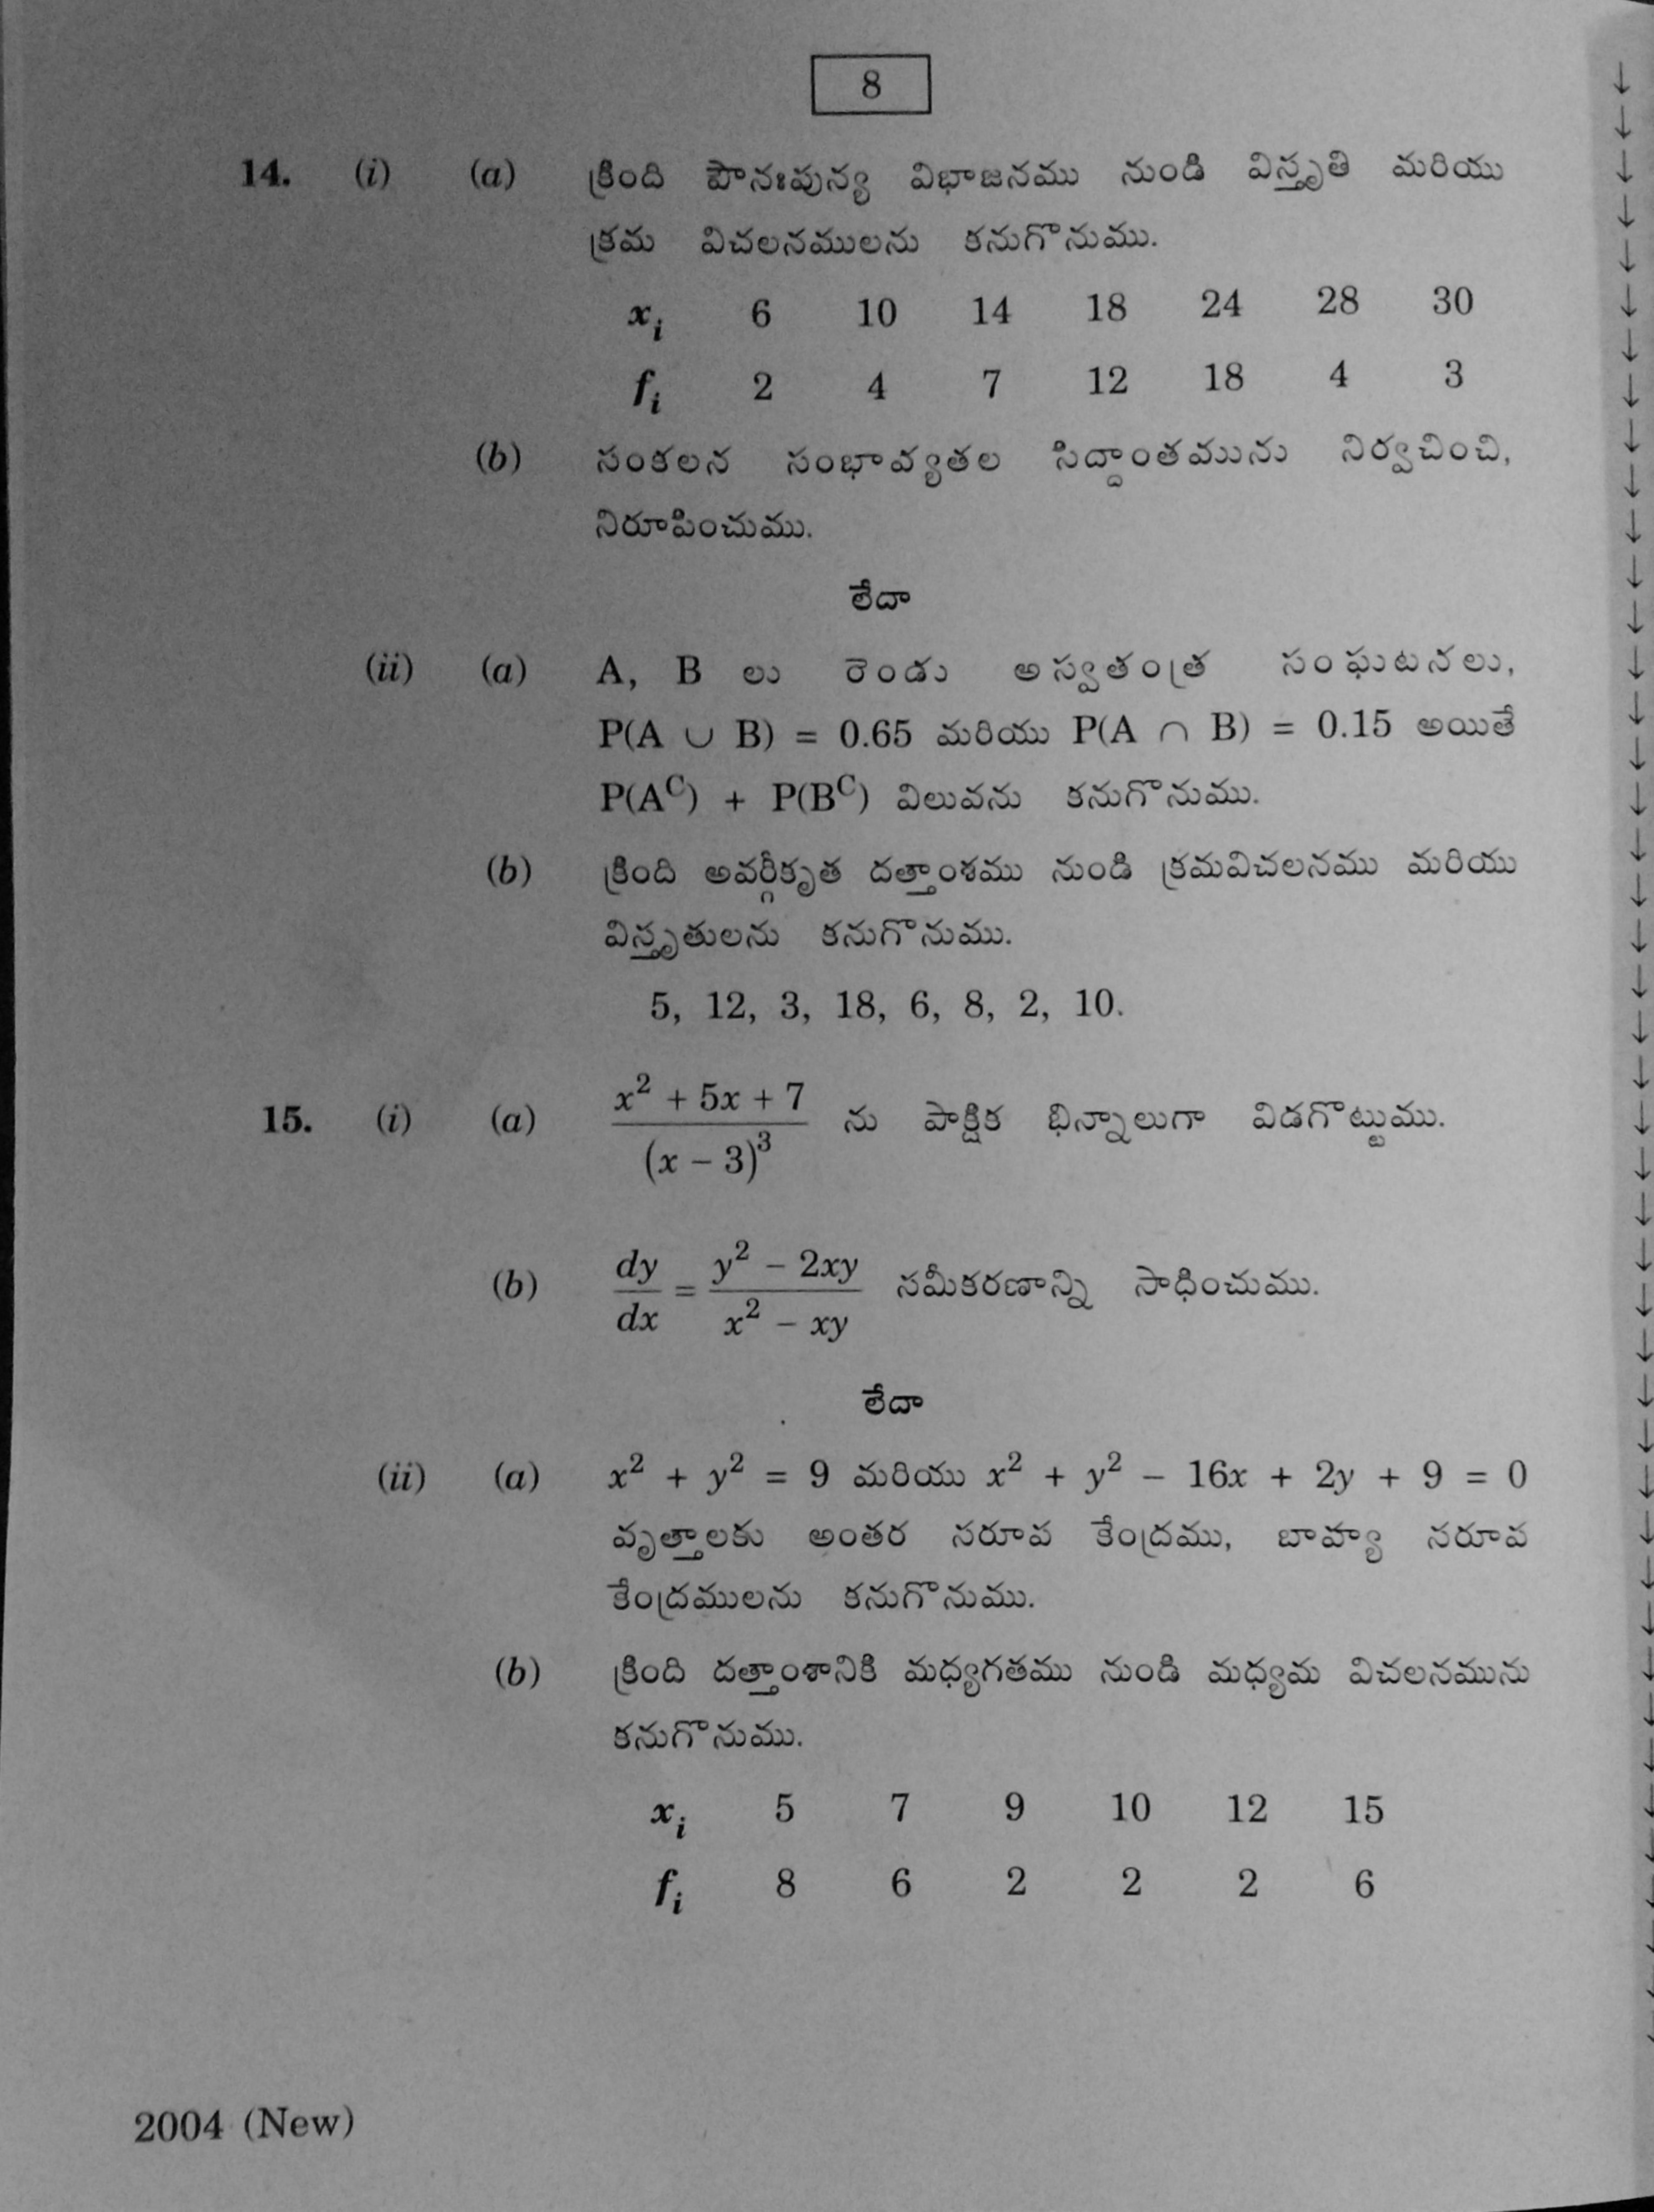 8
14. (i) (a) క్రింది పౌనఃపున్య విభాజనము నుండి విస్తృతి మరియు
క్రమ విచలనములను కనుగొనుము.
xᵢ 6 10 14 18 24 28 30
fᵢ 2 4 7 12 18 4 3
(b) సంకలన సంభావ్యతల సిద్ధాంతమును నిర్వచించి,
నిరూపించుము.
లేదా
(ii) (a) A, B లు రెండు అస్వతంత్ర సంఘటనలు,
P(A ∪ B) = 0.65 మరియు P(A ∩ B) = 0.15 అయితే
P(Aᶜ) + P(Bᶜ) విలువను కనుగొనుము.
(b) క్రింది అవర్గీకృత దత్తాంశము నుండి క్రమవిచలనము మరియు
విస్తృతులను కనుగొనుము.
5, 12, 3, 18, 6, 8, 2, 10.
15. (i) (a) (x² + 5x + 7)/(x – 3)³ ను పాక్షిక భిన్నాలుగా విడగొట్టుము.
(b) dy/dx = (y² – 2xy)/(x² – xy) సమీకరణాన్ని సాధించుము.
లేదా
(ii) (a) x² + y² = 9 మరియు x² + y² – 16x + 2y + 9 = 0
వృత్తాలకు అంతర సరూప కేంద్రము, బాహ్య సరూప
కేంద్రములను కనుగొనుము.
(b) క్రింది దత్తాంశానికి మధ్యగతము నుండి మధ్యమ విచలనమును
కనుగొనుము.
xᵢ 5 7 9 10 12 15
fᵢ 8 6 2 2 2 6
2004 (New)